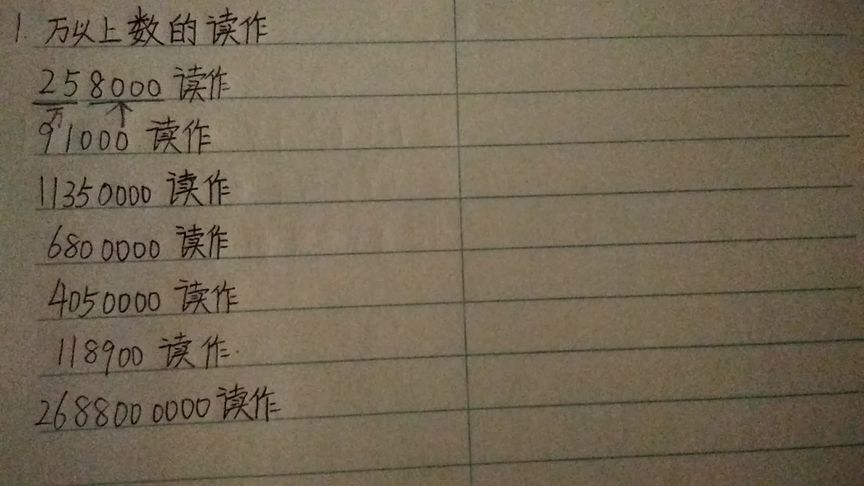 1. 万以上数的读作
258000 读作
万 个
91000 读作
11350000 读作
6800000 读作
4050000 读作
118900 读作.
2688000000 读作